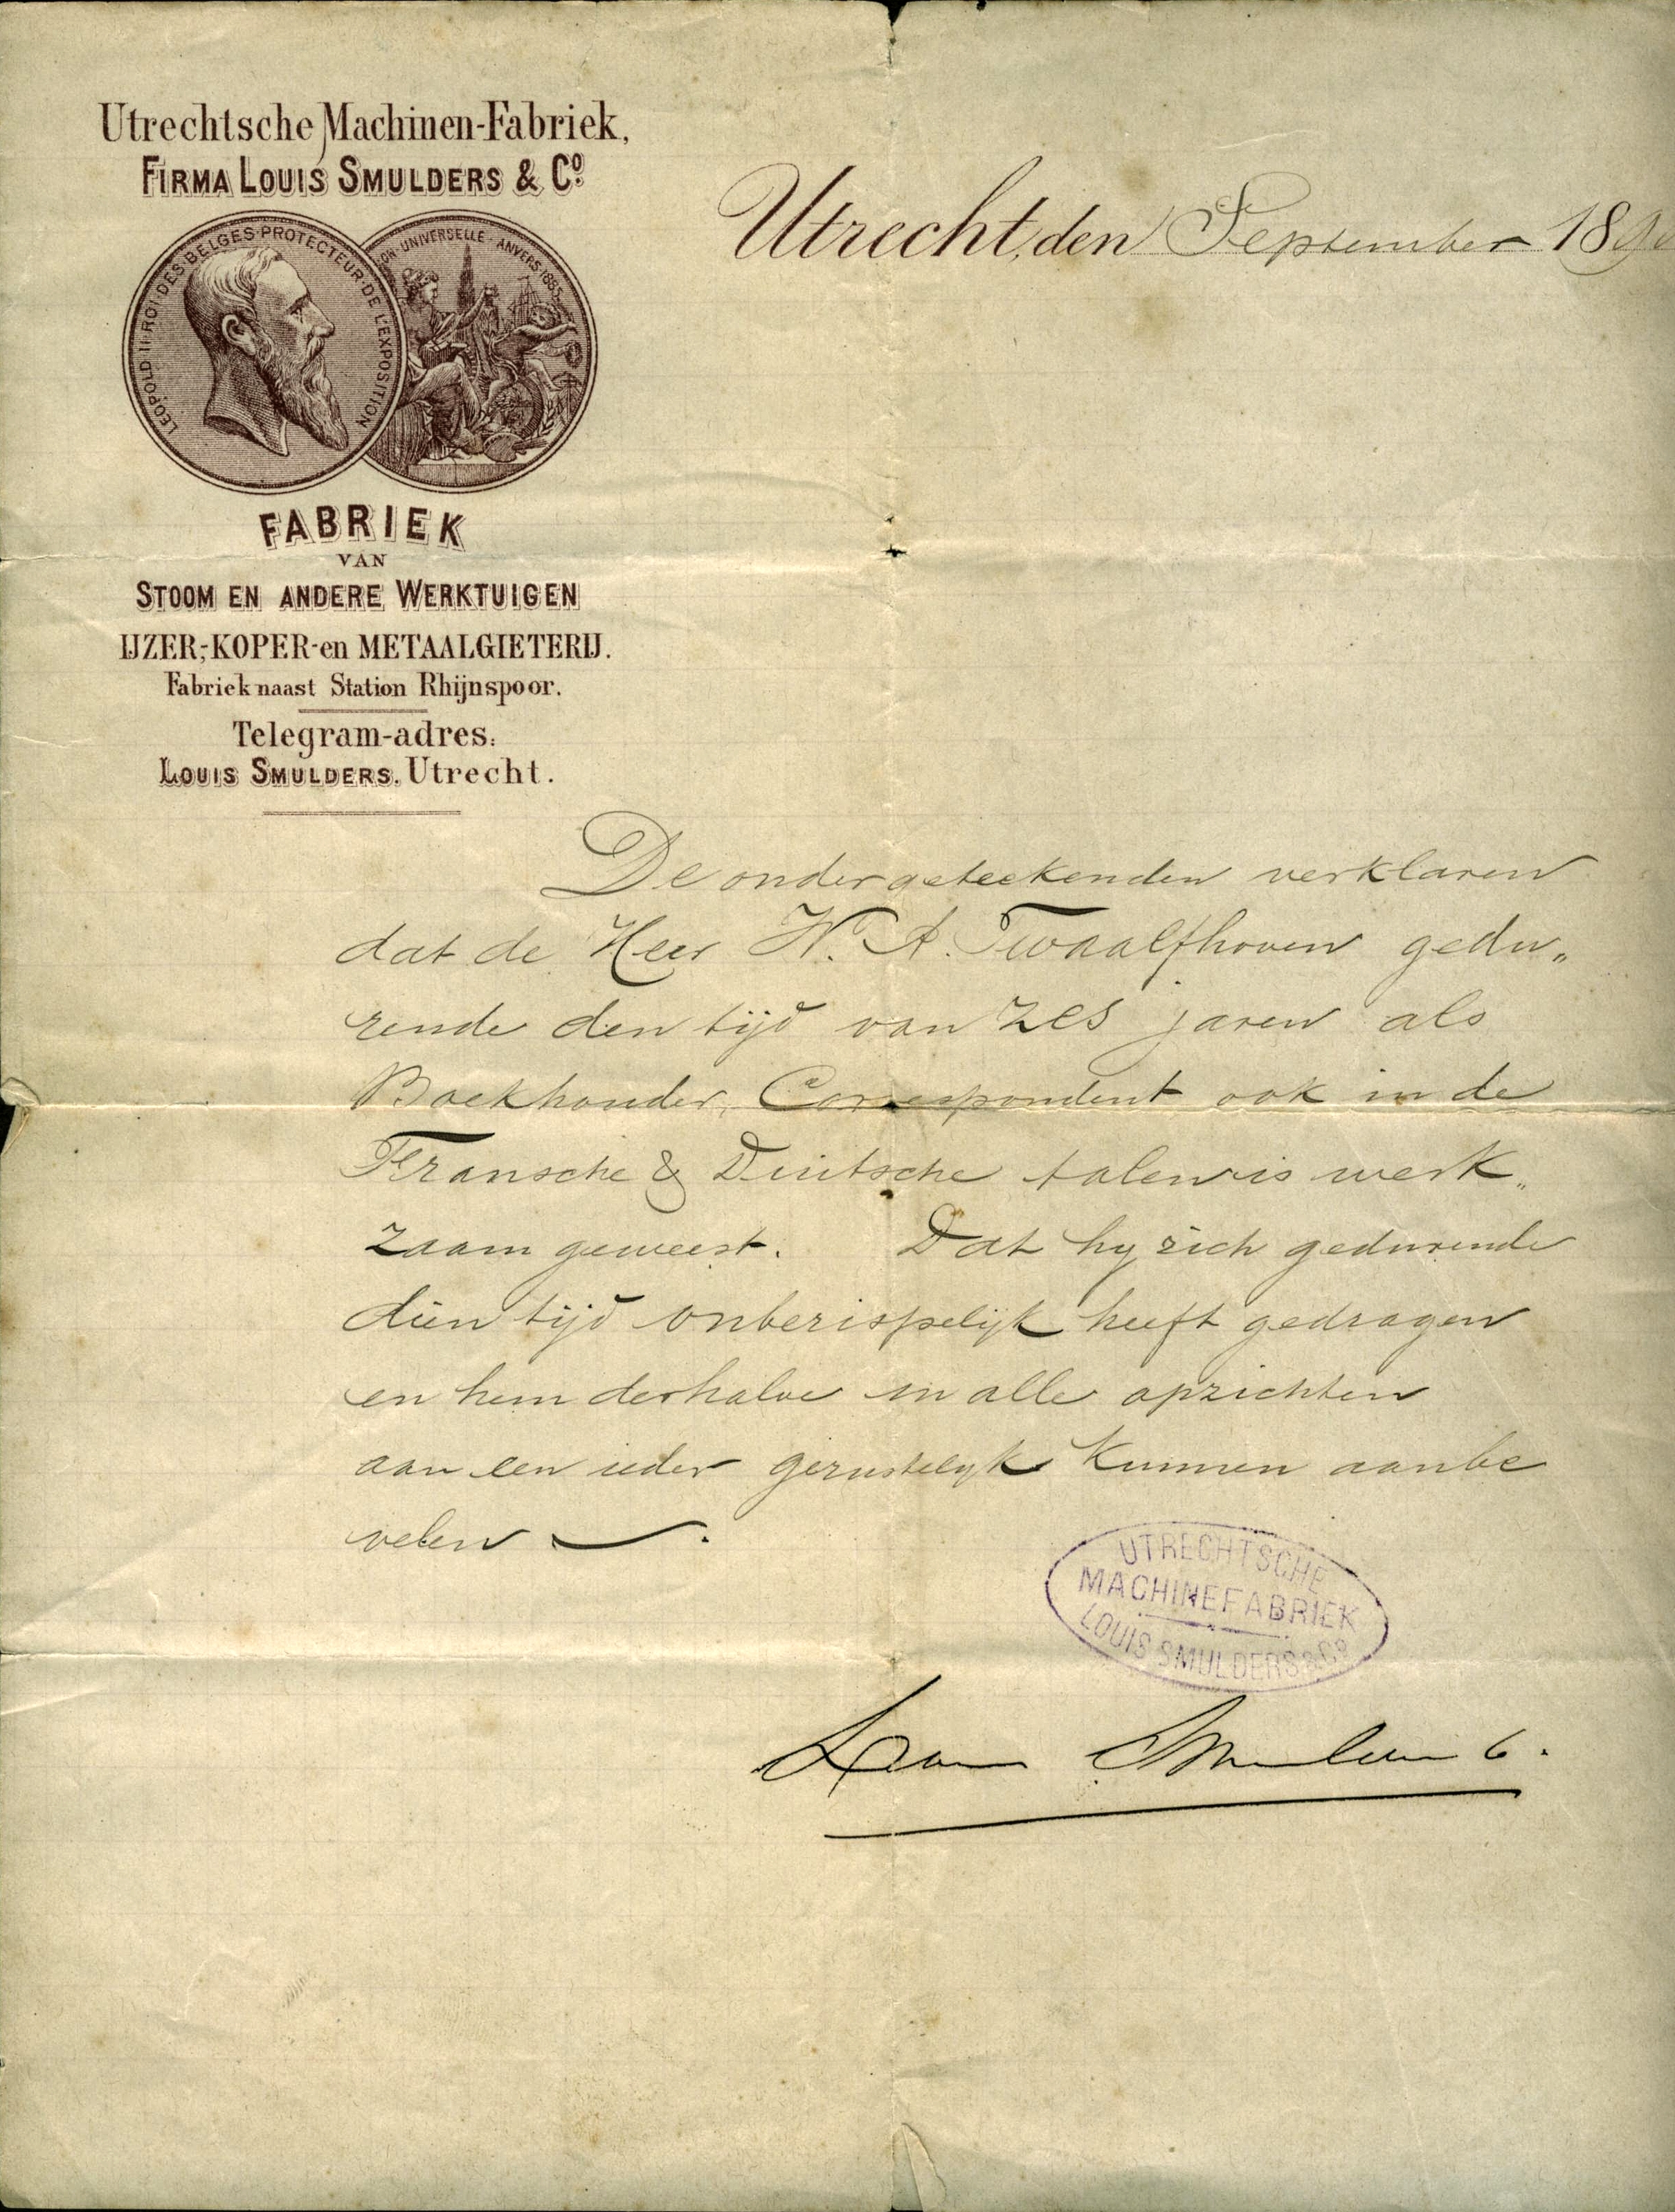 Utrechtsche Machinen-Fabriek,
FIRMA LOUIS SMULDERS & Co.
LEOPOLD II ROI DES BELGES PROTECTEUR DE L'EXPOSITION
ON UNIVERSELLE ANVERS 1885
FABRIEK
VAN
STOOM EN ANDERE WERKTUIGEN
IJZER-, KOPER- en METAALGIETERIJ.
Fabriek naast Station Rhijnspoor.
Telegram-adres:
LOUIS SMULDERS. Utrecht.
Utrecht, den September 189
De ondergeteekenden verklaren
dat de Heer W. A. Twaalfhoven gedu„
rende den tijd van zes jaren als
Boekhouder, Correspondent ook in de
Fransche & Duitsche talen is werk„
zaam geweest. Dat hy zich gedurende
dien tijd onberispelijk heeft gedragen
en hem derhalve in alle opzichten
aan een ieder gerustelyk kunnen aanbe
velen.
UTRECHTSCHE
MACHINEFABRIEK
LOUIS SMULDERS & Co
Louis Smulders Co.